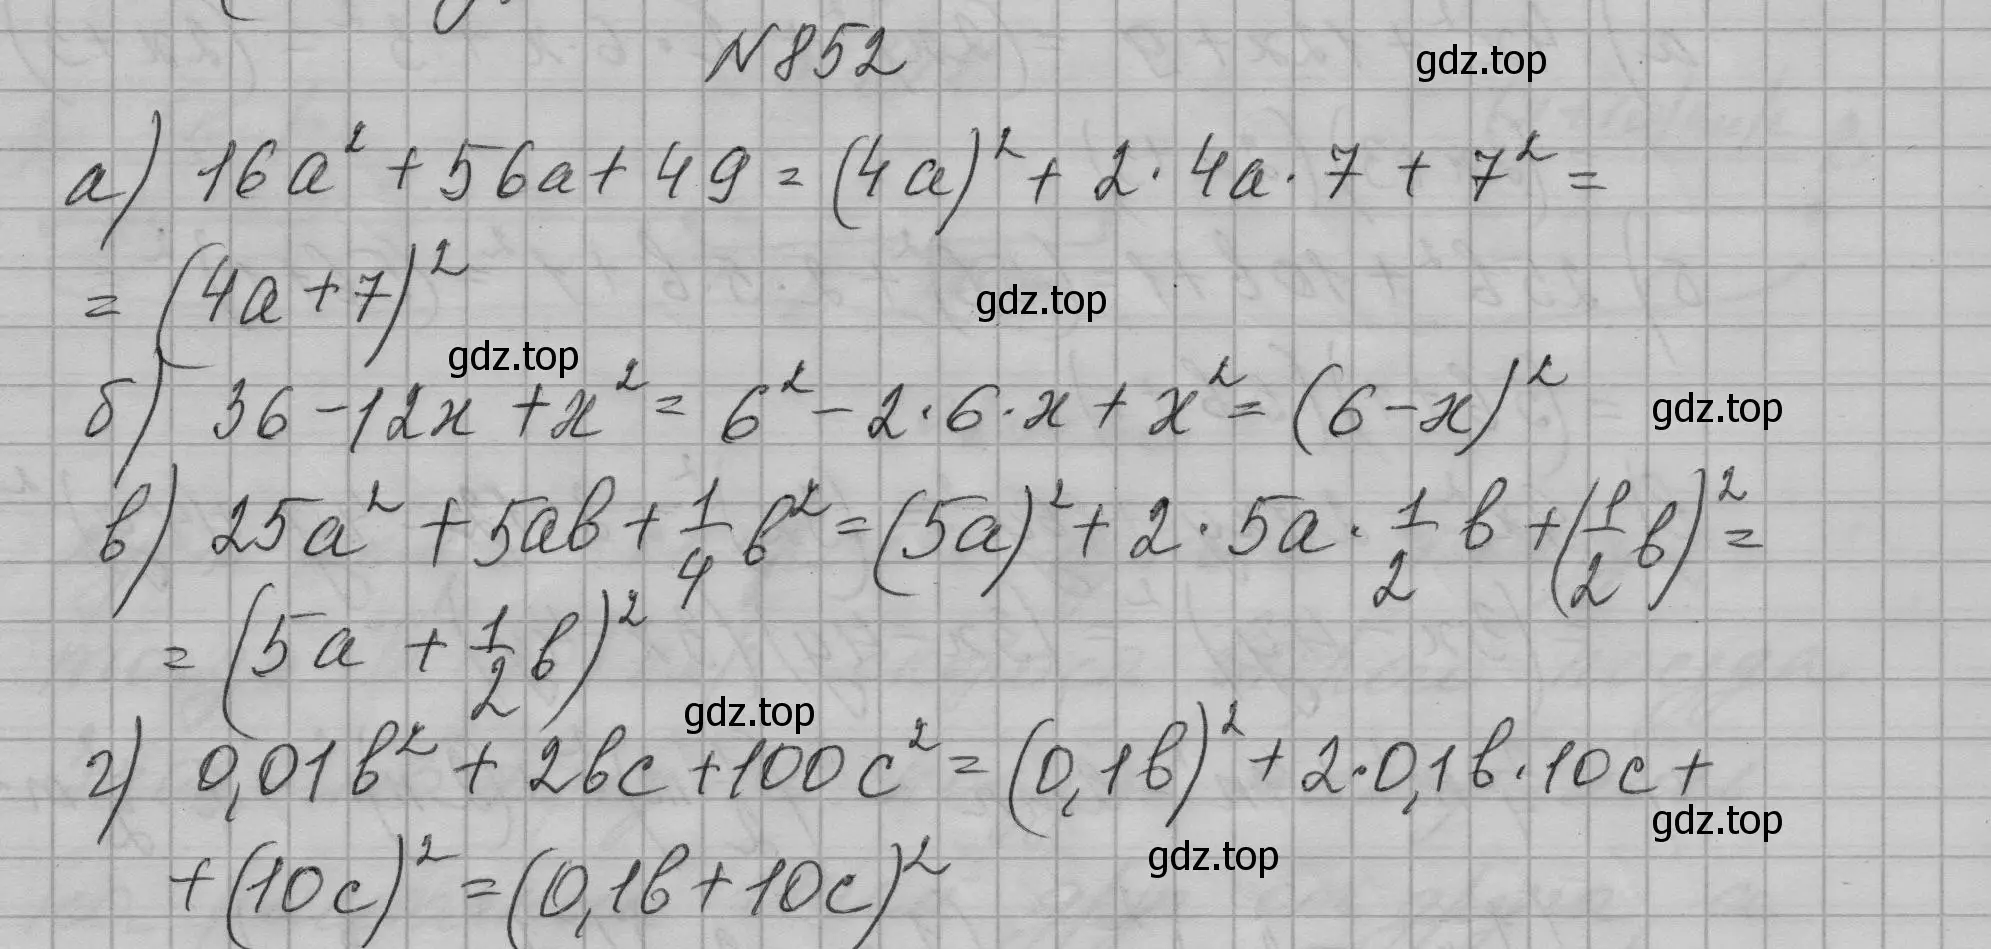 N 852
gdz.top
а) 16a² + 56a + 49 = (4a)² + 2 · 4a · 7 + 7² =
= (4a + 7)²
gdz.top
gdz.top
б) 36 - 12x + x² = 6² - 2 · 6 · x + x² = (6 - x)²
gdz.top
в) 25a² + 5ab + 1/4 b² = (5a)² + 2 · 5a · 1/2 b + (1/2 b)² =
= (5a + 1/2 b)²
gdz.top
г) 0,01b² + 2bc + 100c² = (0,1b)² + 2 · 0,1b · 10c +
gdz.top
gdz.top
+ (10c)² = (0,1b + 10c)²